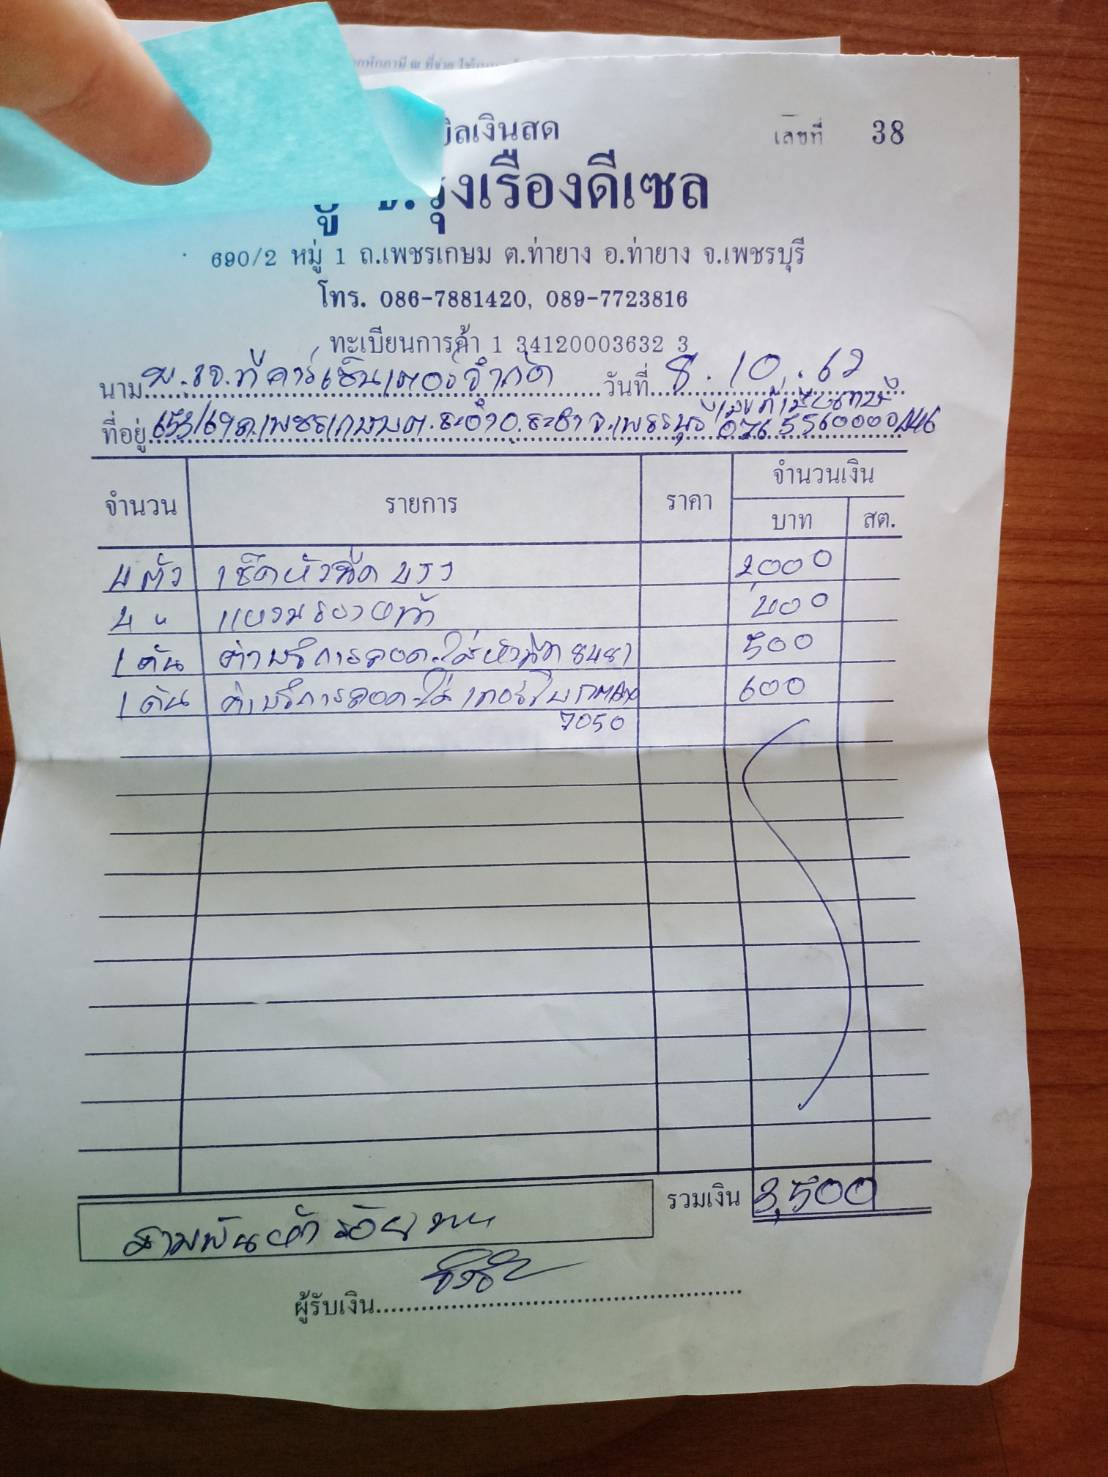 บิลเงินสด เลขที่ 38
รุ่งเรืองดีเซล
690/2 หมู่ 1 ถ.เพชรเกษม ต.ท่ายาง อ.ท่ายาง จ.เพชรบุรี
โทร. 086-7881420, 089-7723816
ทะเบียนการค้า 1 34120003632 3
นาม บ.เจ.ที คาร์เซ็นเตอร์จำกัด วันที่ 8.10.62
ที่อยู่ 653/69 ถ.เพชรเกษม ต.ชะอำ อ.ชะอำ จ.เพชรบุรี เลขที่เสียภาษี
จำนวน รายการ ราคา จำนวนเงิน
บาท สต.
4 ตัว เช็คหัวฉีด 2000
4 " แหวนรอง 400
1 คัน ค่าบริการถอด-ใส่หัวฉีด 8481 500
1 คัน ค่าบริการถอด-ใส่ เทอร์โบ DMAX 600
7050
รวมเงิน 3,500
สามพันห้าร้อยบาท
ผู้รับเงิน